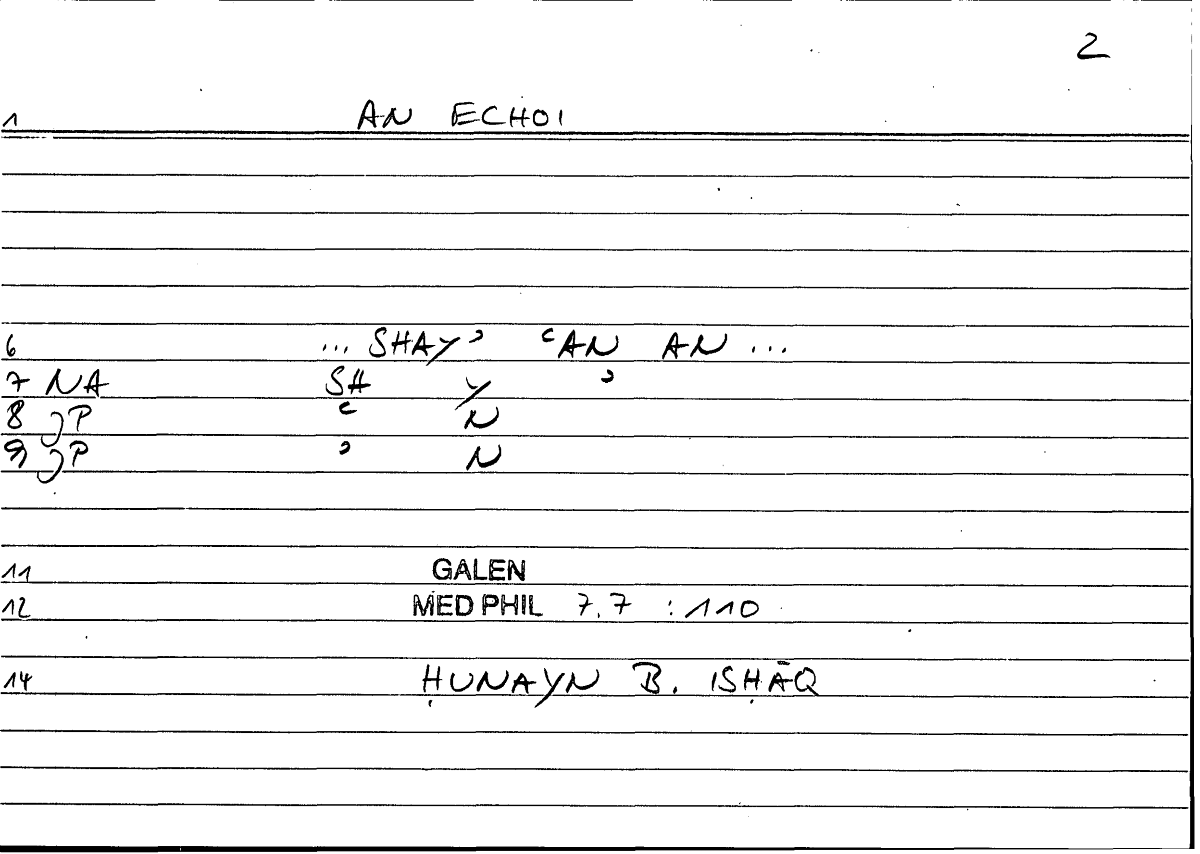 2
1 AN ECHOI
6 ... SHAYʾ ʿAN AN ...
7 NA SH Y ʾ
8 JP ʿ N
9 JP ʾ N
11 GALEN
12 MED PHIL 7.7 :110
14 ḤUNAYN B. ISḤĀQ